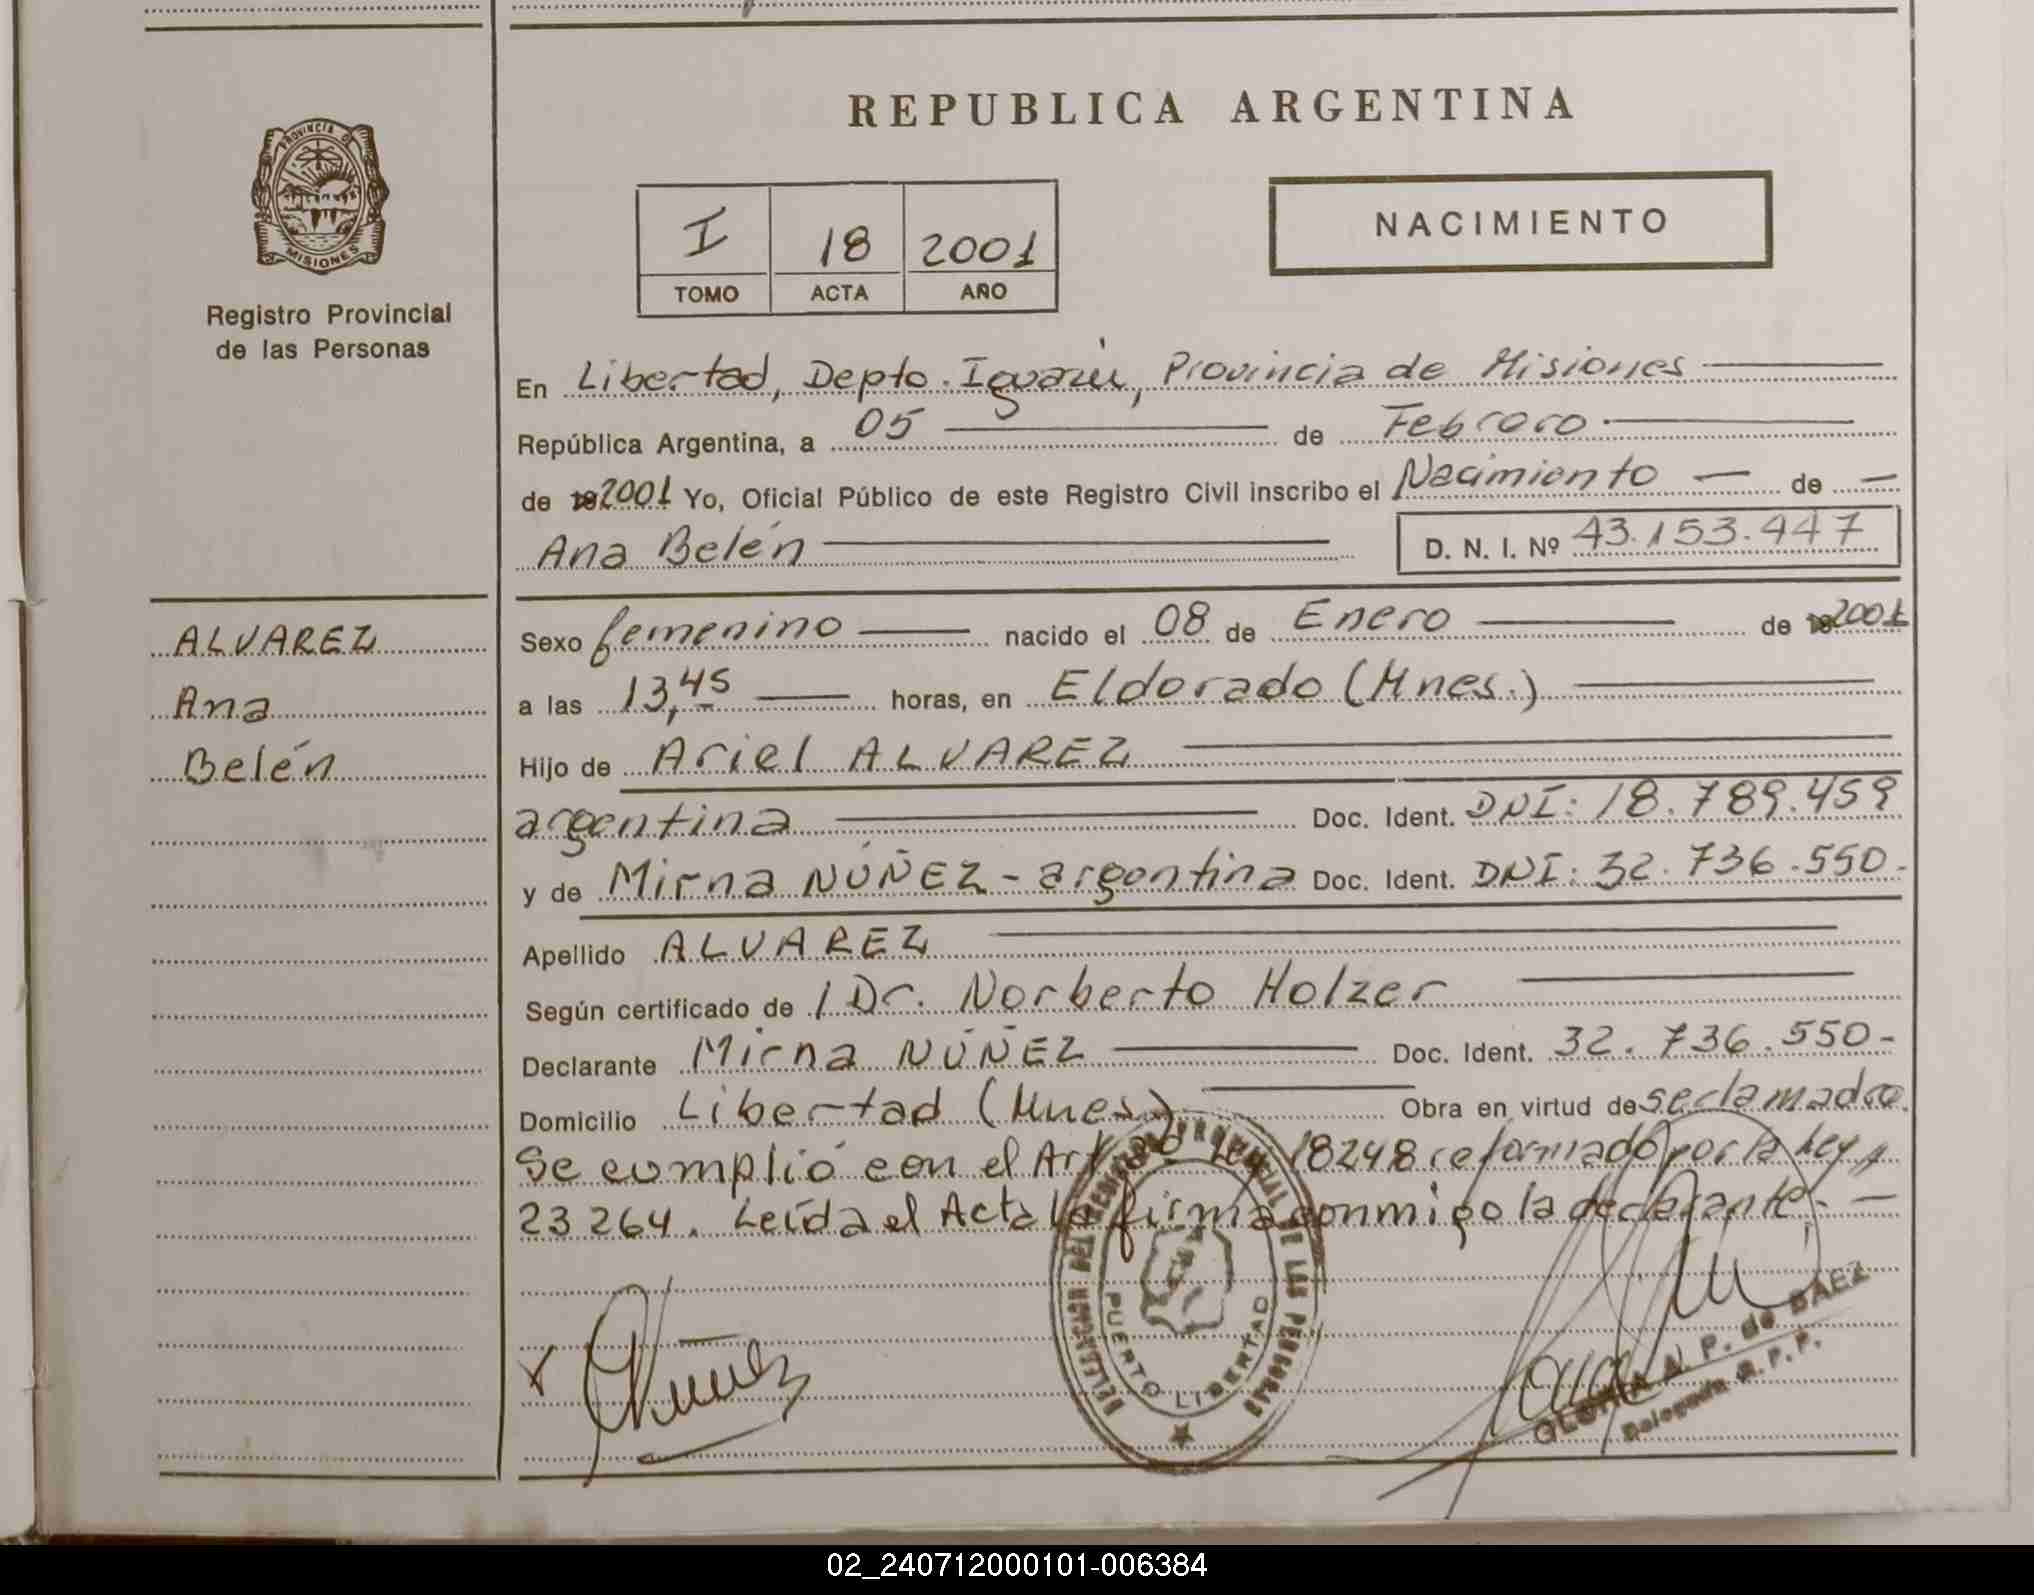 REPUBLICA ARGENTINA
PROVINCIA DE
MISIONES
Registro Provincial
de las Personas
I 18 2001
TOMO ACTA AÑO
NACIMIENTO
En Libertad, Depto. Iguazú, Provincia de Misiones
República Argentina, a 05 de Febrero
de 19 2001 Yo, Oficial Público de este Registro Civil inscribo el Nacimiento — de —
Ana Belén D. N. I. Nº 43.153.447
ALVAREZ
Ana
Belén
Sexo femenino nacido el 08 de Enero de 19 2001
a las 13,45 horas, en Eldorado (Mnes.)
Hijo de Ariel ALVAREZ
argentina Doc. Ident. DNI: 18.789.459
y de Mirna NÚÑEZ - argentina Doc. Ident. DNI: 32.736.550.-
Apellido ALVAREZ
Según certificado de / Dr. Norberto Holzer
Declarante Mirna NÚÑEZ Doc. Ident. 32.736.550-
Domicilio Libertad (Mnes) Obra en virtud de ser la madre.
Se cumplió con el Art Ley 18248 reformado por la Ley
23264. Leída el Acta la firma conmigo la declarante. —
DELEGACION DEL REGISTRO PROVINCIAL DE LAS PERSONAS
PUERTO LIBERTAD
Nuñez
GLORIA A. P. de BAEZ
Delegada R. P. P.
02_240712000101-006384